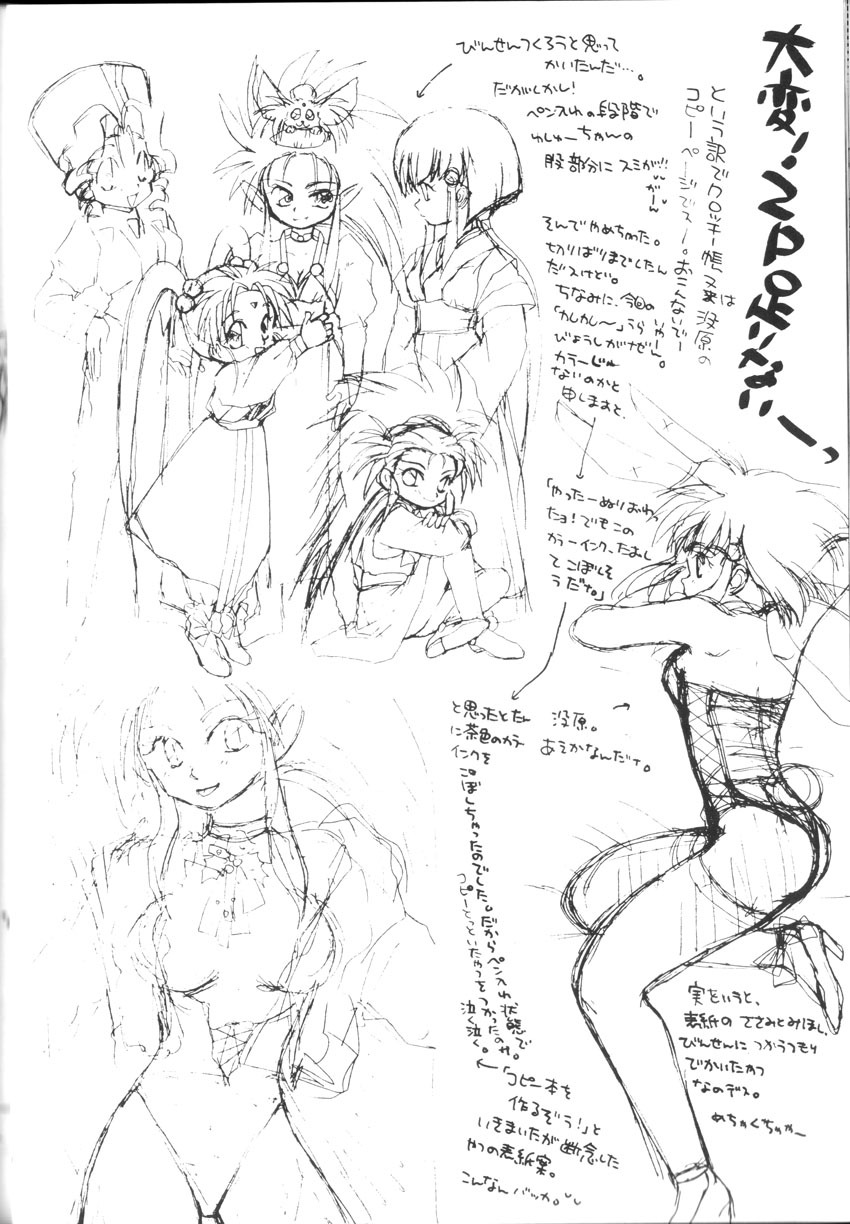 大変!!ネタがないーっ
という訳でクロッキー帳又は没原の
コピーページでスー。おこんないでー
びんせんつくろうと思って
かいたんだ…。
だがしかし!
ペン入れの段階で
りょしゅーちゃんの
股部分にスミが!!
がーん
そんでやめちゃった。
切りばりまでしたん
だけど。
ちなみに、今回の
「かしかし〜」うら
びょうしがぜん。
カラーじゃ
ないのかと
申しますと、
「やったーぬりおわっ
たョ!でもこの
カラーインク、たおし
てこぼしそ
うだナ。」
と思ったとたん
に茶色のカラー
インクを
こぼしちゃったのでした。だからペン入れ状態で
コピーとっといたやつをつかったのサ。
泣く泣く。
没原。
あそかなんだナ。
←「コピー本を
作るぞう!」と
いきまいたが断念した
やつの表紙案。
こんなんバッカ。
実をいうと、
表紙のささみとみほし、
びんせんにつかうつもり
でかいたやつ
なのデス。
めちゃくちゃやー